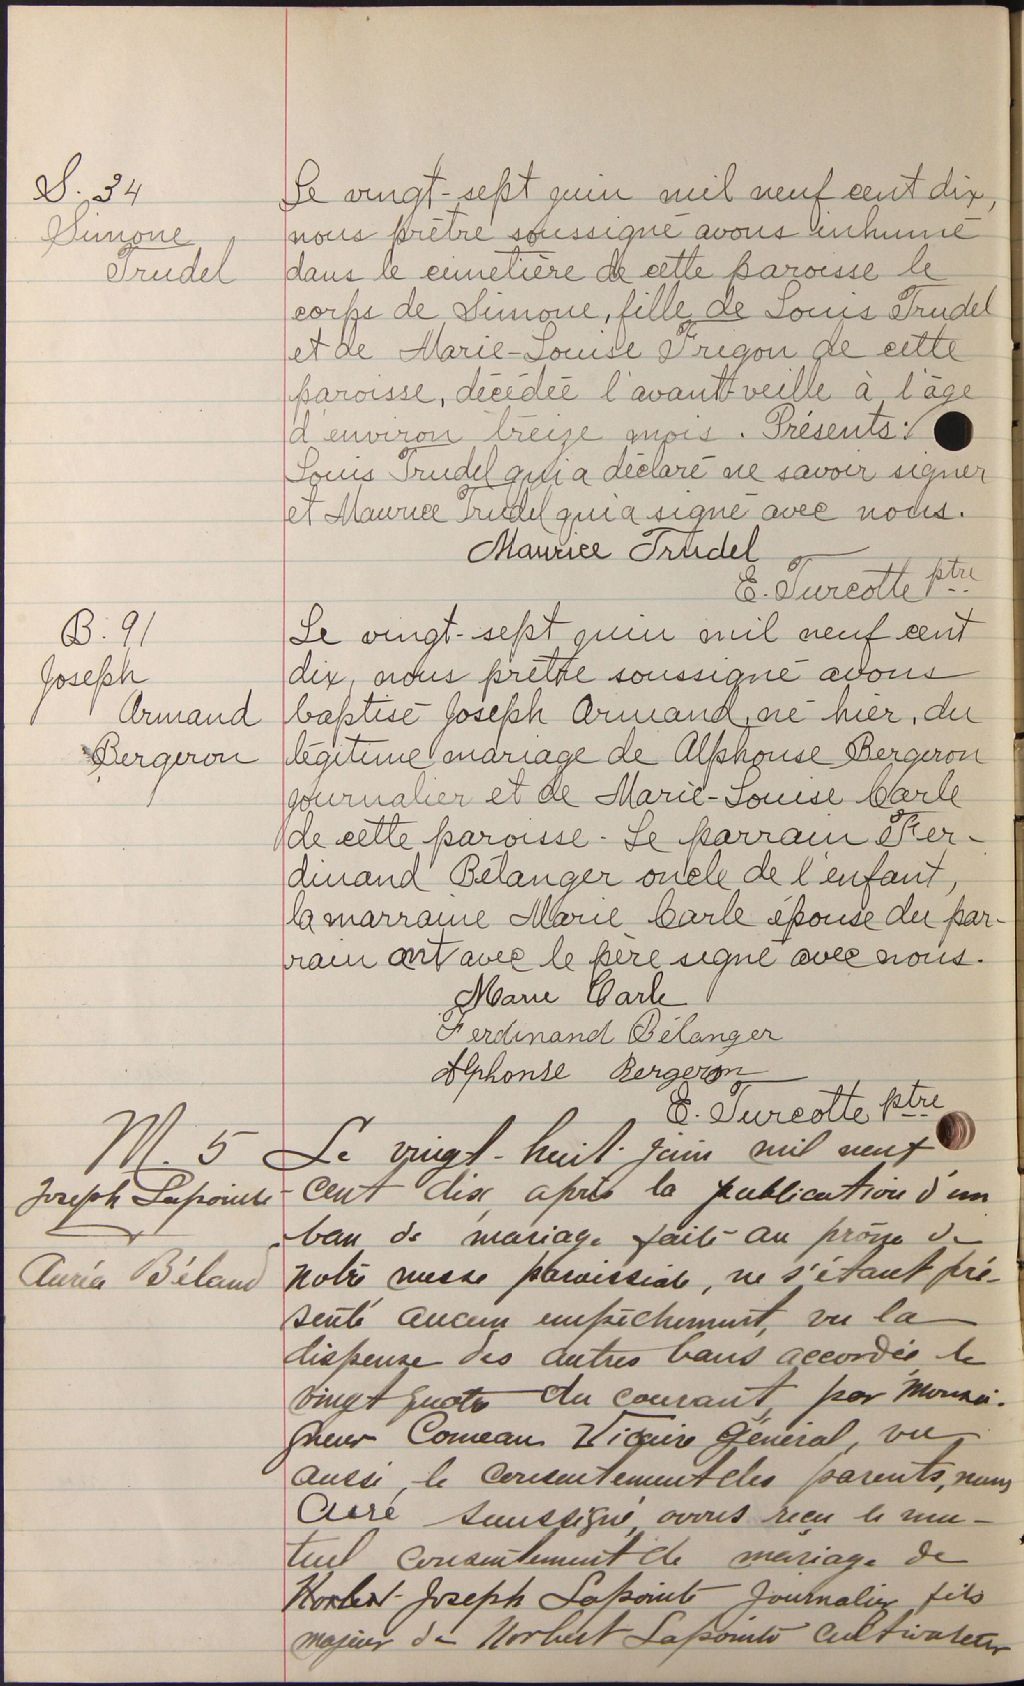 S. 34
Simone
Trudel
Le vingt-sept juin mil neuf cent dix,
nous prêtre soussigné avons inhumé
dans le cimetière de cette paroisse le
corps de Simone, fille de Louis Trudel
et de Marie-Louise Frigon de cette
paroisse, décédée l'avant-veille à l'âge
d'environ treize mois. Présents:
Louis Trudel qui a déclaré ne savoir signer
et Maurice Trudel qui a signé avec nous.
Maurice Trudel
E. Turcotte ptre
B. 91
Joseph
Armand
Bergeron
Le vingt-sept juin mil neuf cent
dix, nous prêtre soussigné avons
baptisé Joseph Armand, né hier, du
légitime mariage de Alphonse Bergeron
journalier et de Marie-Louise Carle
de cette paroisse. Le parrain Fer-
dinand Bélanger oncle de l'enfant,
la marraine Marie Carle épouse du par-
rain ont avec le père signé avec nous.
Marie Carle
Ferdinand Bélanger
Alphonse Bergeron
E. Turcotte ptre
M. 5
Joseph Lapointe
Auréa Béland
Le vingt-huit juin mil neuf
cent dix, après la publication d'un
ban de mariage faite au prône de
notre messe paroissiale, ne s'étant pré-
senté aucun empêchement, vu la
dispense des autres bans accordée le
vingt quatre du courant, par Monsei-
gneur Comeau Vicaire Général, vu
aussi le consentement des parents, nous
Curé soussigné, avons reçu le mu-
tuel consentement de mariage de
Norbert Joseph Lapointe Journalier fils
majeur de Norbert Lapointe cultivateur